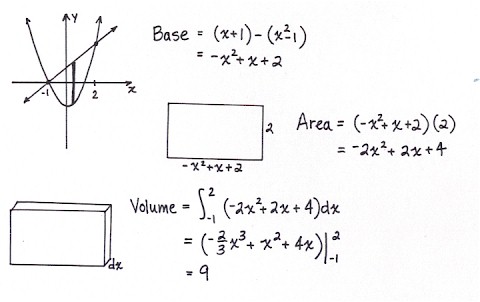 y
-1
2
x
Base = (x+1) - (x²-1)
= -x² + x + 2
2
-x² + x + 2
Area = (-x² + x + 2)(2)
= -2x² + 2x + 4
dx
Volume = ∫₋₁² (-2x² + 2x + 4)dx
= (-2/3 x³ + x² + 4x)|₋₁²
= 9